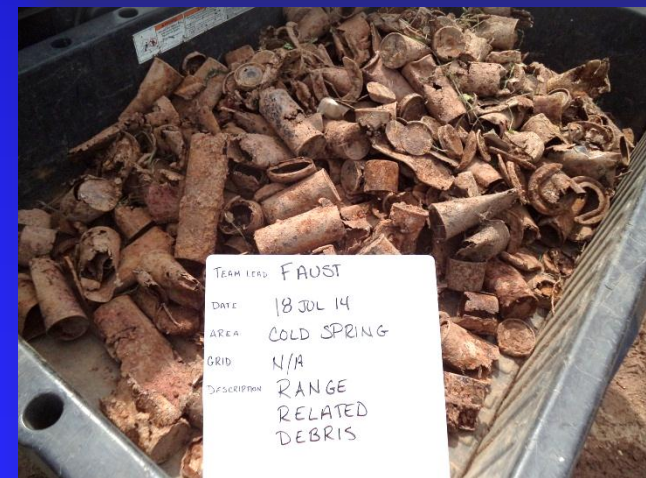 TEAM LEAD FAUST
DATE 18 JUL 14
AREA COLD SPRING
GRID N/A
DESCRIPTION RANGE
RELATED
DEBRIS